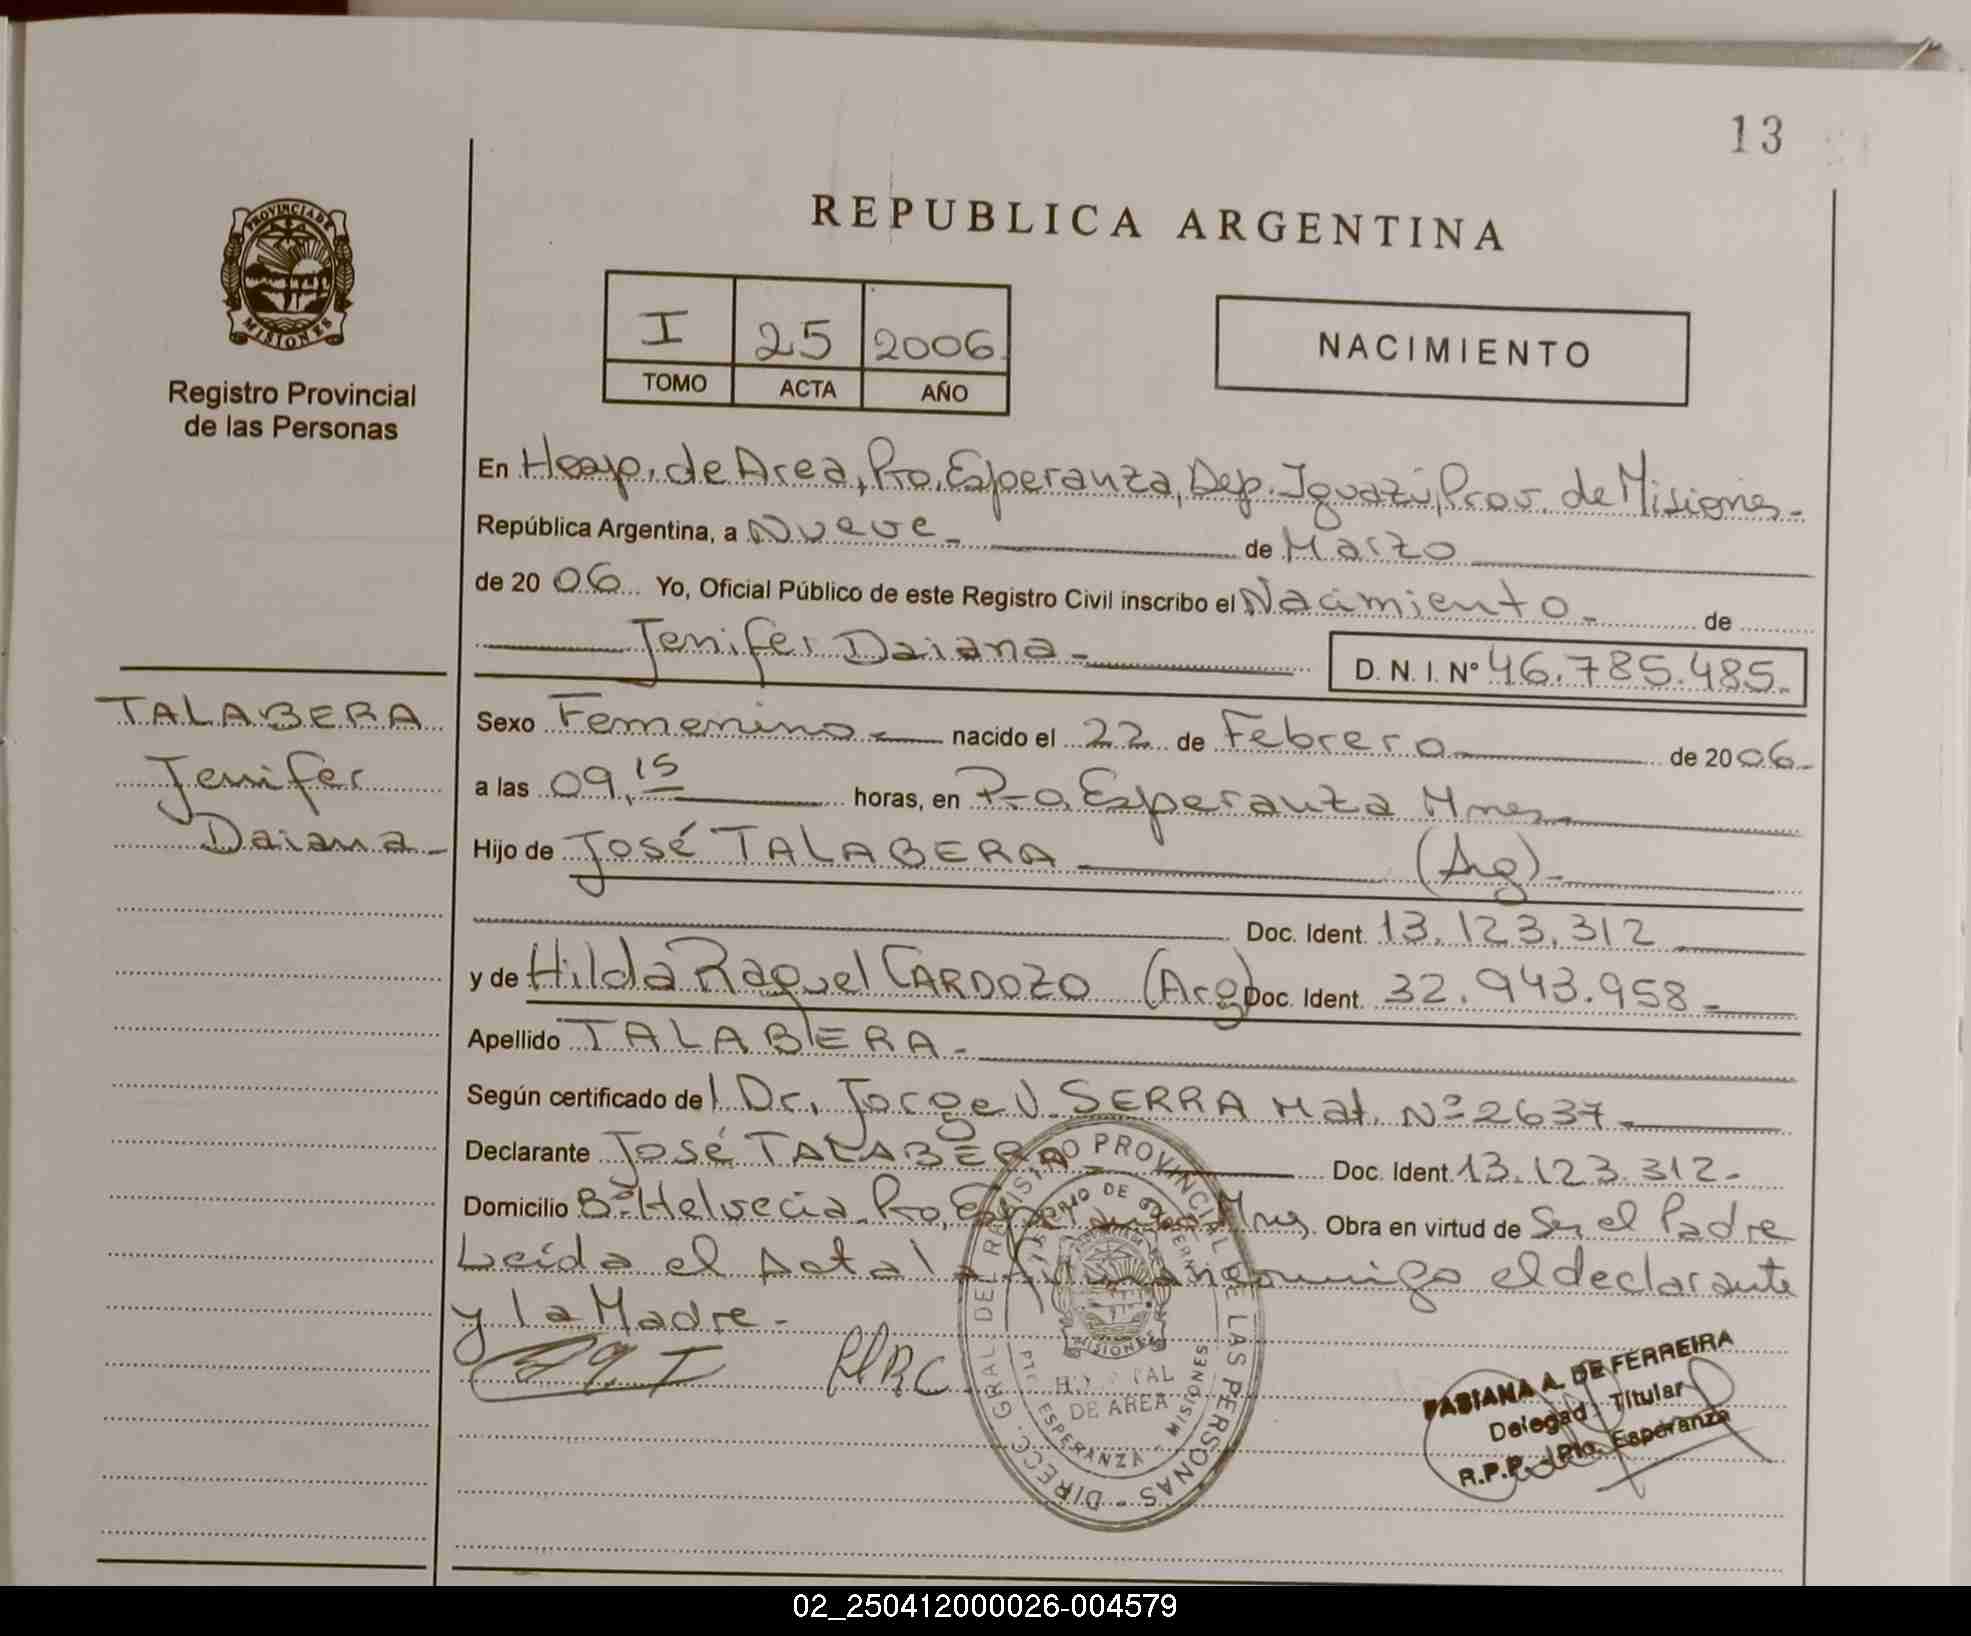 13
REPUBLICA ARGENTINA
PROVINCIA DE
MISIONES
Registro Provincial
de las Personas
I 25 2006
TOMO ACTA AÑO
NACIMIENTO
En Hosp. de Area, Pto. Esperanza, Dep. Iguazú, Prov. de Misiones-
República Argentina, a Nueve- de Marzo
de 2006 Yo, Oficial Público de este Registro Civil inscribo el Nacimiento- de
Jenifer Daiana- D. N. I. Nº 46.785.485-
TALABERA
Jenifer
Daiana-
Sexo Femenino- nacido el 22 de Febrero de 2006-
a las 09,15 horas, en Pto. Esperanza Mnes-
Hijo de José TALABERA (Arg)-
Doc. Ident. 13.123.312
y de Hilda Raquel CARDOZO (Arg) Doc. Ident. 32.943.958-
Apellido TALABERA-
Según certificado del Dr. Jorge V. SERRA Mat. Nº 2637
Declarante José TALABERA Doc. Ident. 13.123.312-
Domicilio Bº Helvecia Pto. Esperanza Mnes. Obra en virtud de Ser el Padre
Leída el Acta la firman conmigo el declarante
y la Madre-
HRC
DIRECC. GRAL DE REGISTRO PROVINCIAL DE LAS PERSONAS
MINISTERIO DE GOBIERNO
MISIONES
HOSPITAL
DE AREA
PTO. ESPERANZA - MISIONES
FABIANA A. DE FERREIRA
Delegada Titular
R.P.P. Pto. Esperanza
02_250412000026-004579